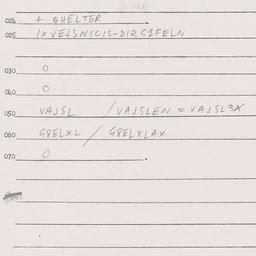 024 + SHELTER
025 1XVEJSNICIS-DIRG1FELN
030 0
040 0
050 VAJSL / VAJSLEN = VAJSL3X
060 G8ELXL / G8ELXLAX
070 0